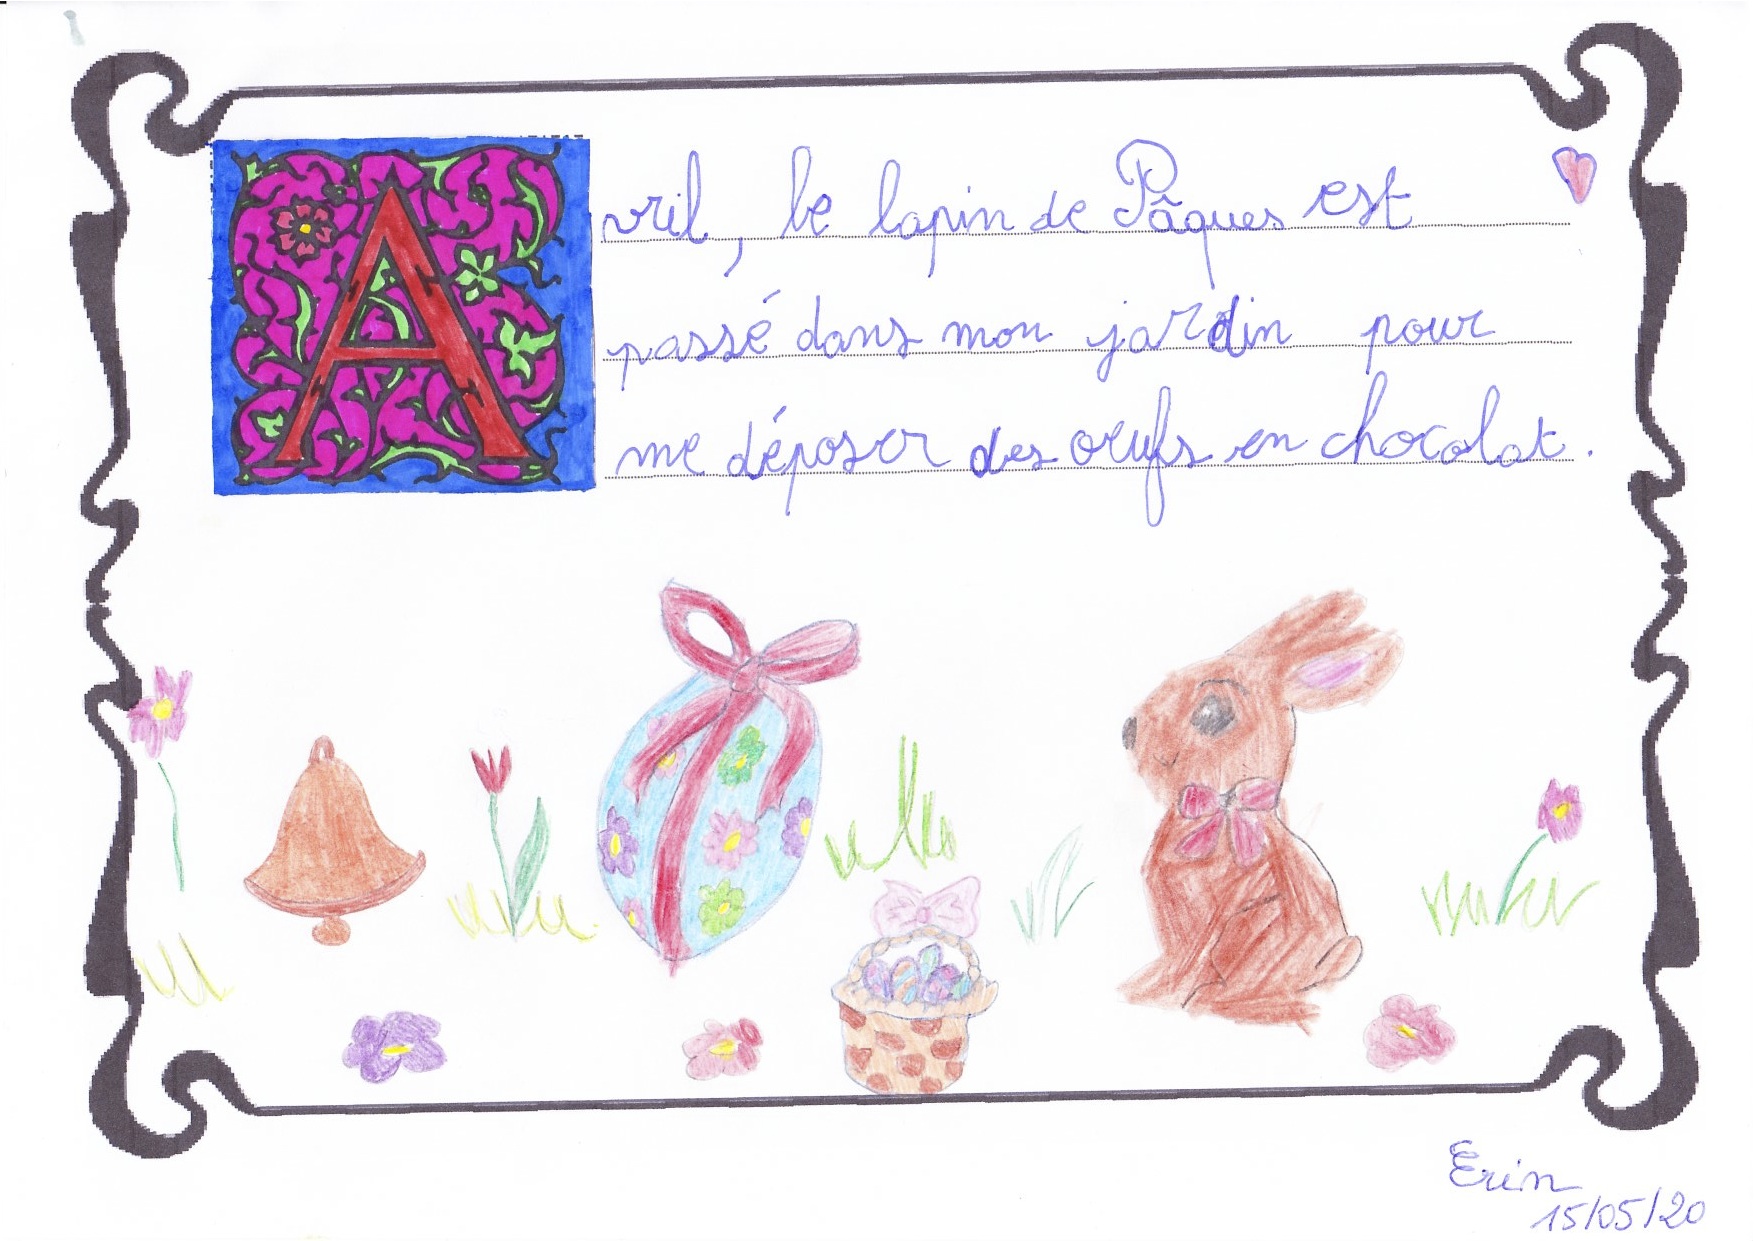 Avril, le lapin de Pâques est
passé dans mon jardin pour
me déposer des œufs en chocolat.
Erin
15/05/20